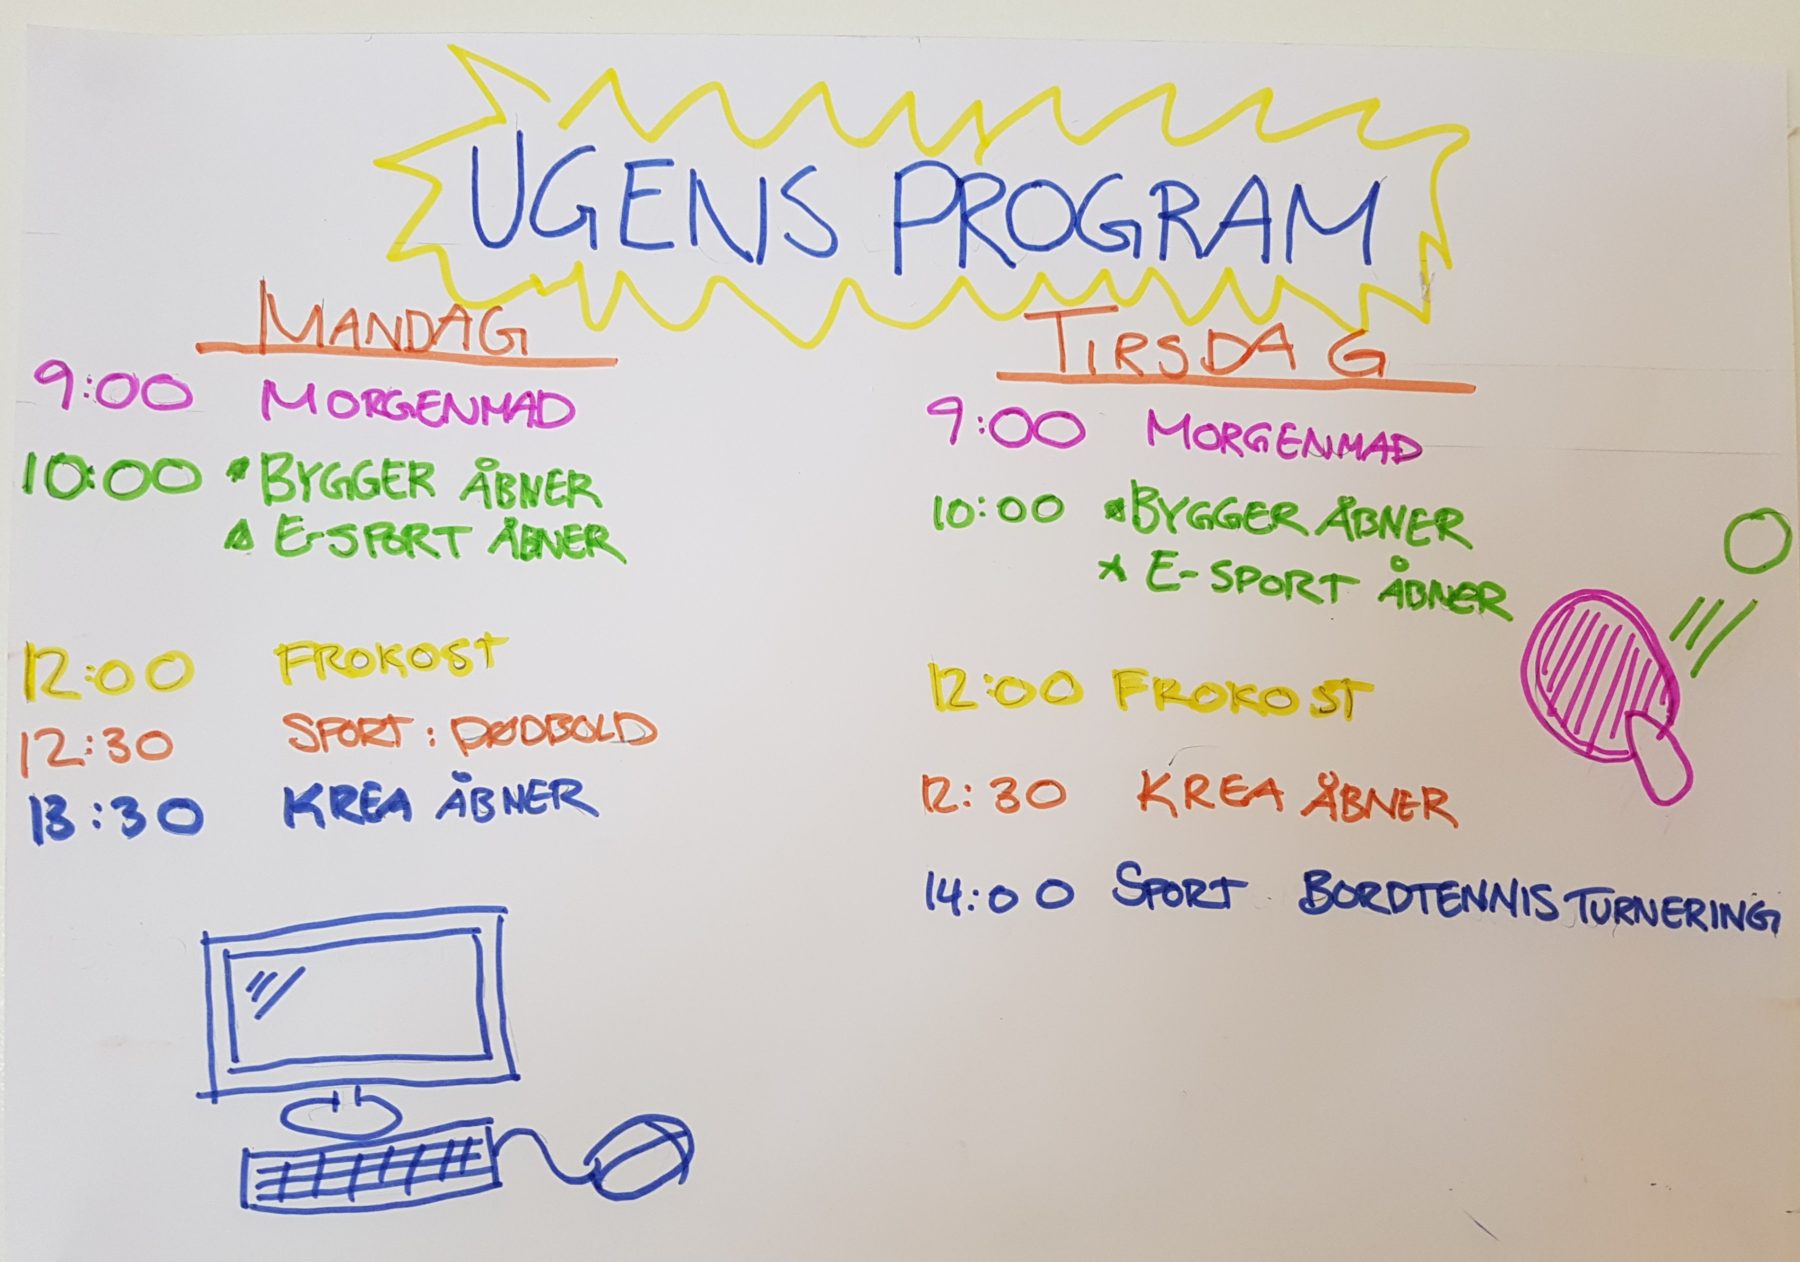 UGENS PROGRAM
MANDAG
9:00 MORGENMAD
10:00 * BYGGER ÅBNER
* E-SPORT ÅBNER
12:00 FROKOST
12:30 SPORT: DØDBOLD
13:30 KREA ÅBNER
TIRSDAG
9:00 MORGENMAD
10:00 * BYGGER ÅBNER
* E-SPORT ÅBNER
12:00 FROKOST
12:30 KREA ÅBNER
14:00 SPORT BORDTENNIS TURNERING